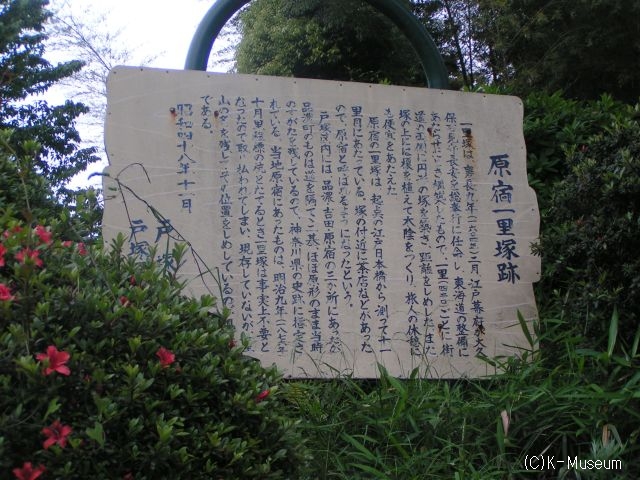 原宿一里塚跡
一里塚は、慶長九年(一六〇四)二月、江戸幕府が大
保 長安を総奉行に任命し、東海道の整備に
あたらせたとき構築したもので、一里(四キロ)ごとに街
道の両側に円形の塚を築き、距離をしめした。また
塚の上には榎を植えて木陰をつくり、旅人の休憩に
も便宜をあたえた。
原宿の一里塚は、起点の江戸日本橋から測って十一
里目にあたっている。塚の付近に茶店などがあった
ので、原宿と呼ばれるようになったという。
戸塚区内には、品濃、吉田、原宿の三か所にあったが
品濃町のものは道を隔てて二基、ほぼ原形のまま当時
のすがたを残しているので、神奈川県の史跡に指定さ
れている。当地原宿にあったものは、明治九年(一八七六)
十月里程標の杭をたてるとき一里塚は事実上不要と
なったので取り払われてしまい、現存していないが、
山 を残してその位置をしめしているの
である。
昭和四十八年十一月
戸塚
戸塚
(C)K-Museum